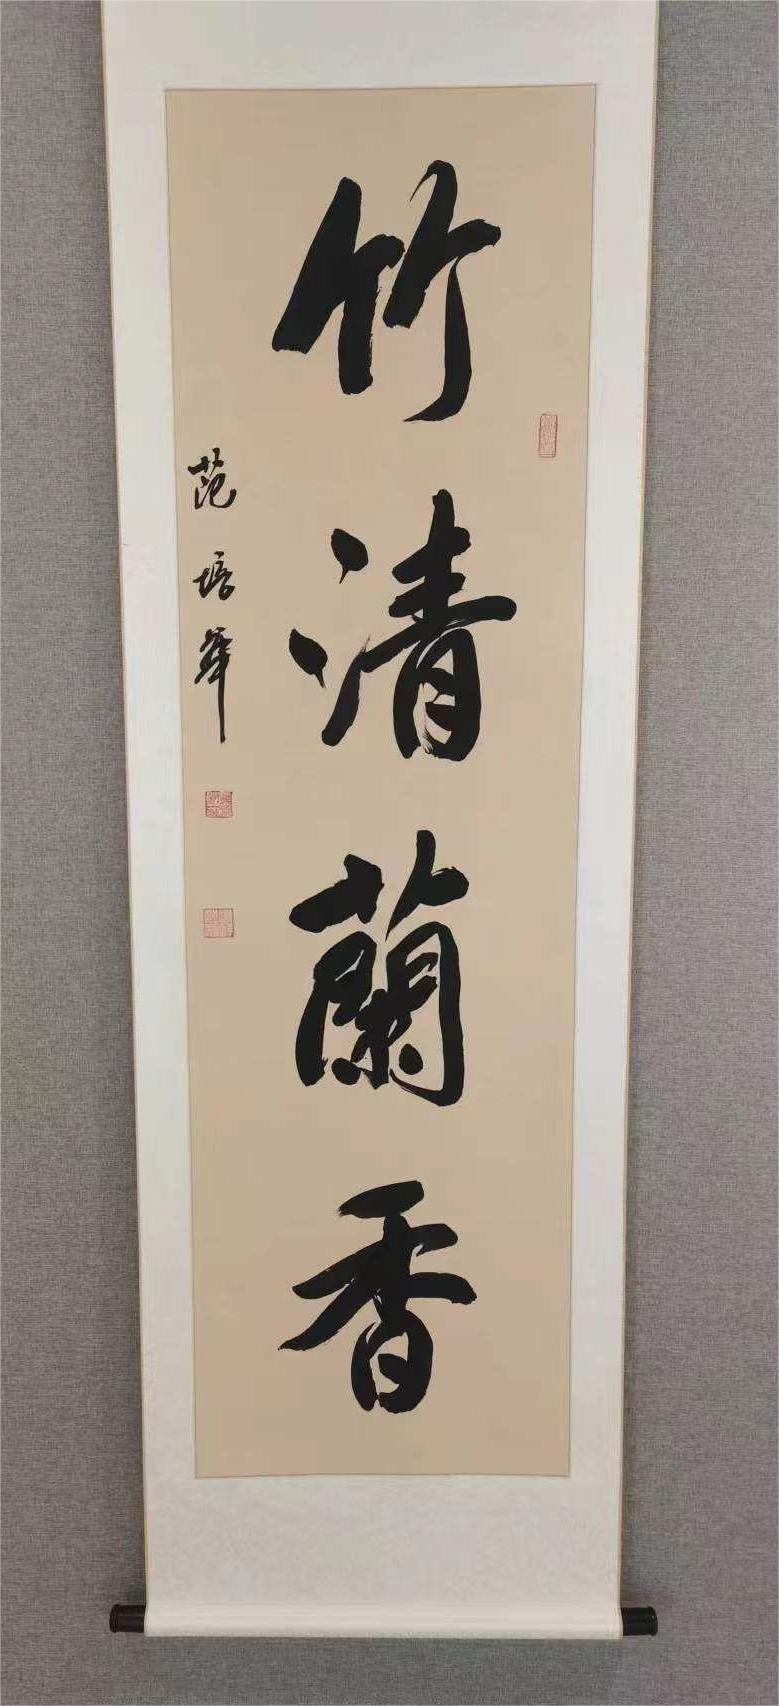 竹清蘭香
范培華